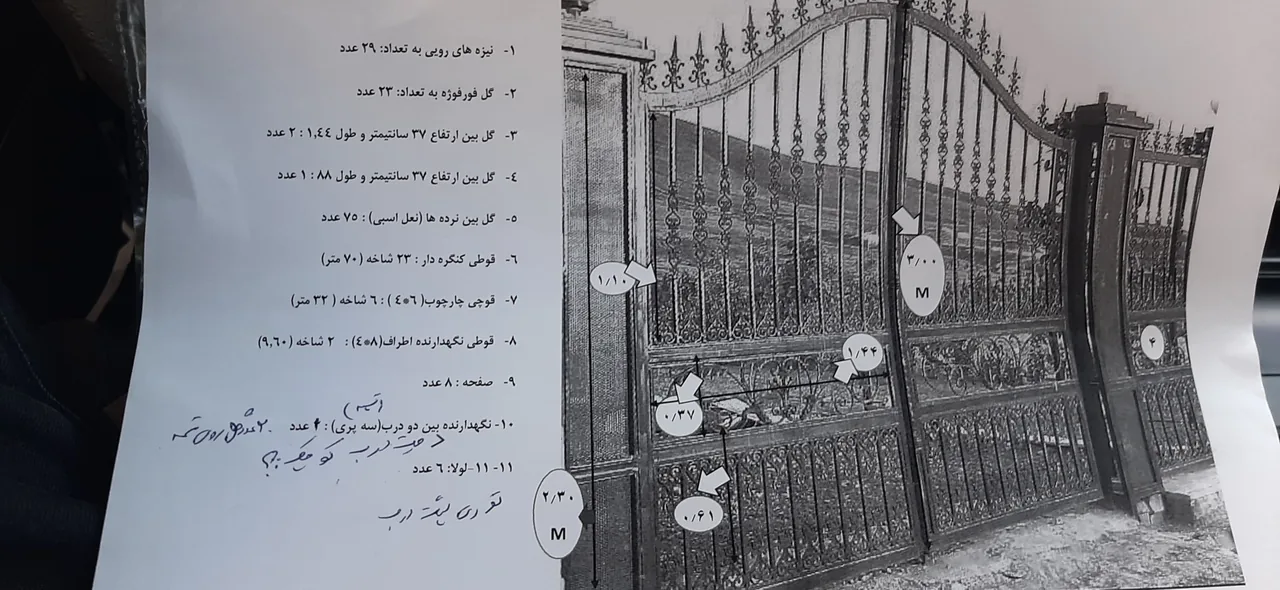 ۱- نیزه های رویی به تعداد: ۲۹ عدد
۲- گل فورفوژه به تعداد: ۲۳ عدد
۳- گل بین ارتفاع ۳۷ سانتیمتر و طول ۱,۴۴ : ۲ عدد
۴- گل بین ارتفاع ۳۷ سانتیمتر و طول ۸۸ : ۱ عدد
۵- گل بین نرده ها (نعل اسبی) : ۷۵ عدد
۶- قوطی کنگره دار : ۲۳ شاخه (۷۰ متر)
۷- قوچی چارچوب( ۶*۴ ) : ۶ شاخه ( ۳۲ متر)
۸- قوطی نگهدارنده اطراف(۸*۴) : ۲ شاخه (۹,۶۰)
۹- صفحه : ۸ عدد
۱۰- نگهدارنده بین دو درب(سه پری) : عدد
۱۱- ۱۱-لولا: ۶ عدد
درب
۱/۱۰
۳/۰۰
M
۱/۴۴
۴
۰/۳۷
۲/۳۰
M
۰/۶۱